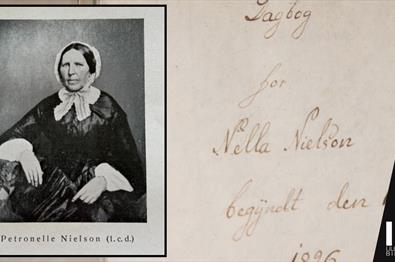 Petronelle Nielson (l.c.d.)
Dagbog
for
Nella Nielson
begÿndt den
1826